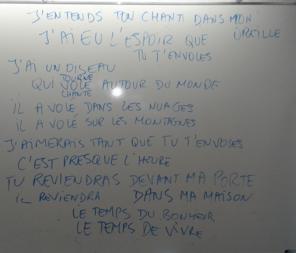 J'ENTENDS TON CHANT DANS MON OREILLE
J'AI EU L'ESPOIR QUE TU T'ENVOLES
J'AI UN OISEAU
TOURNE
QUI VOLE AUTOUR DU MONDE
CHANTE
IL A VOLÉ DANS LES NUAGES
IL A VOLÉ SUR LES MONTAGNES
J'AIMERAIS TANT QUE TU T'ENVOLES
C'EST PRESQUE L'HEURE
TU REVIENDRAS DEVANT MA PORTE
IL REVIENDRA DANS MA MAISON
LE TEMPS DU BONHEUR
LE TEMPS DE VIVRE